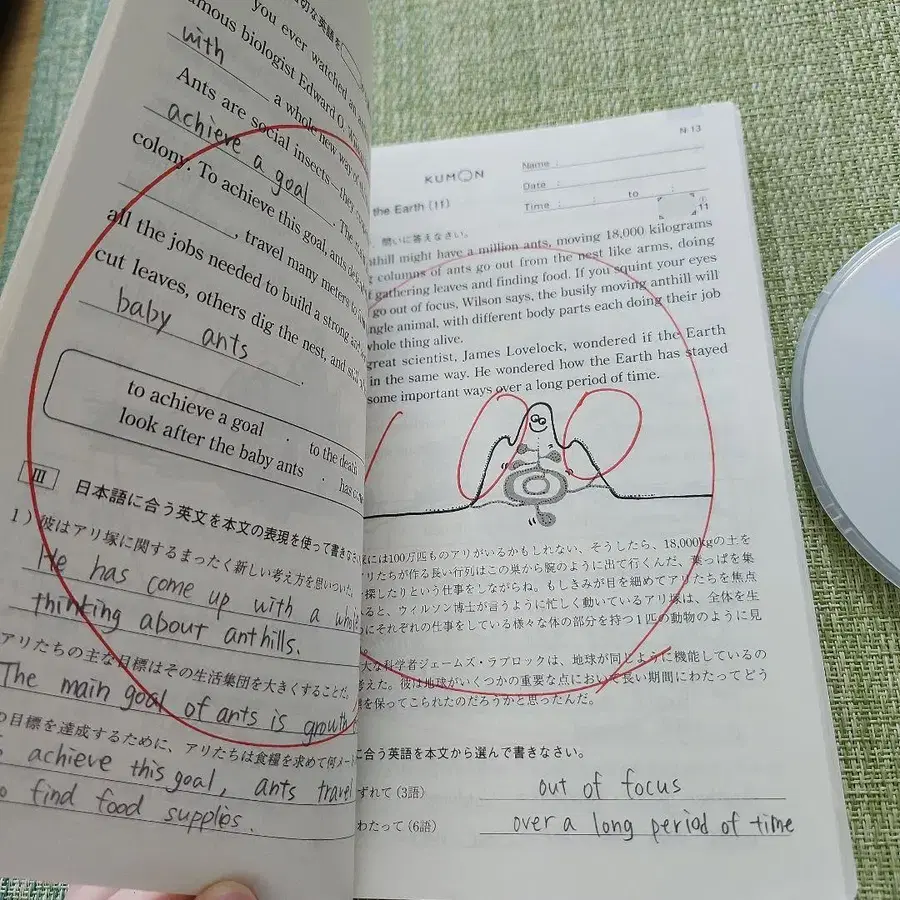 切な英語を
you ever watched an
famous biologist Edward O.
with a whole new way of
Ants are social insects—they
achieve a goal. The
colony. To achieve this goal, ants
, travel many meters to
all the jobs needed to build a strong
cut leaves, others dig the nest, and
baby ants.
to achieve a goal · to the death
look after the baby ants ·
III 日本語に合う英文を本文の表現を使って書きなさい
1) 彼はアリ塚に関するまったく新しい考え方を思いついた
He has come up with a whole
thinking about anthills.
アリたちの主な目標はその生活集団を大きくすることだ。
The main goal of ants is growth
の目標を達成するために、アリたちは食糧を求めて何メート
achieve this goal, ants travel
find food supplies.
N-13
KUMON
Name :
Date :
Time : : to :
the Earth (11)
11
問いに答えなさい。
might have a million ants, moving 18,000 kilograms
columns of ants go out from the nest like arms, doing
gathering leaves and finding food. If you squint your eyes
go out of focus, Wilson says, the busily moving anthill will
animal, with different body parts each doing their job
whole thing alive.
great scientist, James Lovelock, wondered if the Earth
in the same way. He wondered how the Earth has stayed
some important ways over a long period of time.
100
には100万匹ものアリがいるかもしれない、そうしたら、18,000kgの土を
リたちが作る長い行列はこの巣から腕のように出て行くんだ、葉っぱを集
探したりという仕事をしながらね。もしきみが目を細めてアリたちを焦点
ると、ウィルソン博士が言うように忙しく動いているアリ塚は、全体を生
にそれぞれの仕事をしている様々な体の部分を持つ1匹の動物のように見
大な科学者ジェームズ・ラブロックは、地球が同じように機能しているの
考えた。彼は地球がいくつかの重要な点において長い期間にわたってどう
を保ってこられたのだろうかと思ったんだ。
に合う英語を本文から選んで書きなさい。
ずれて (3語) out of focus
わたって (6語) over a long period of time